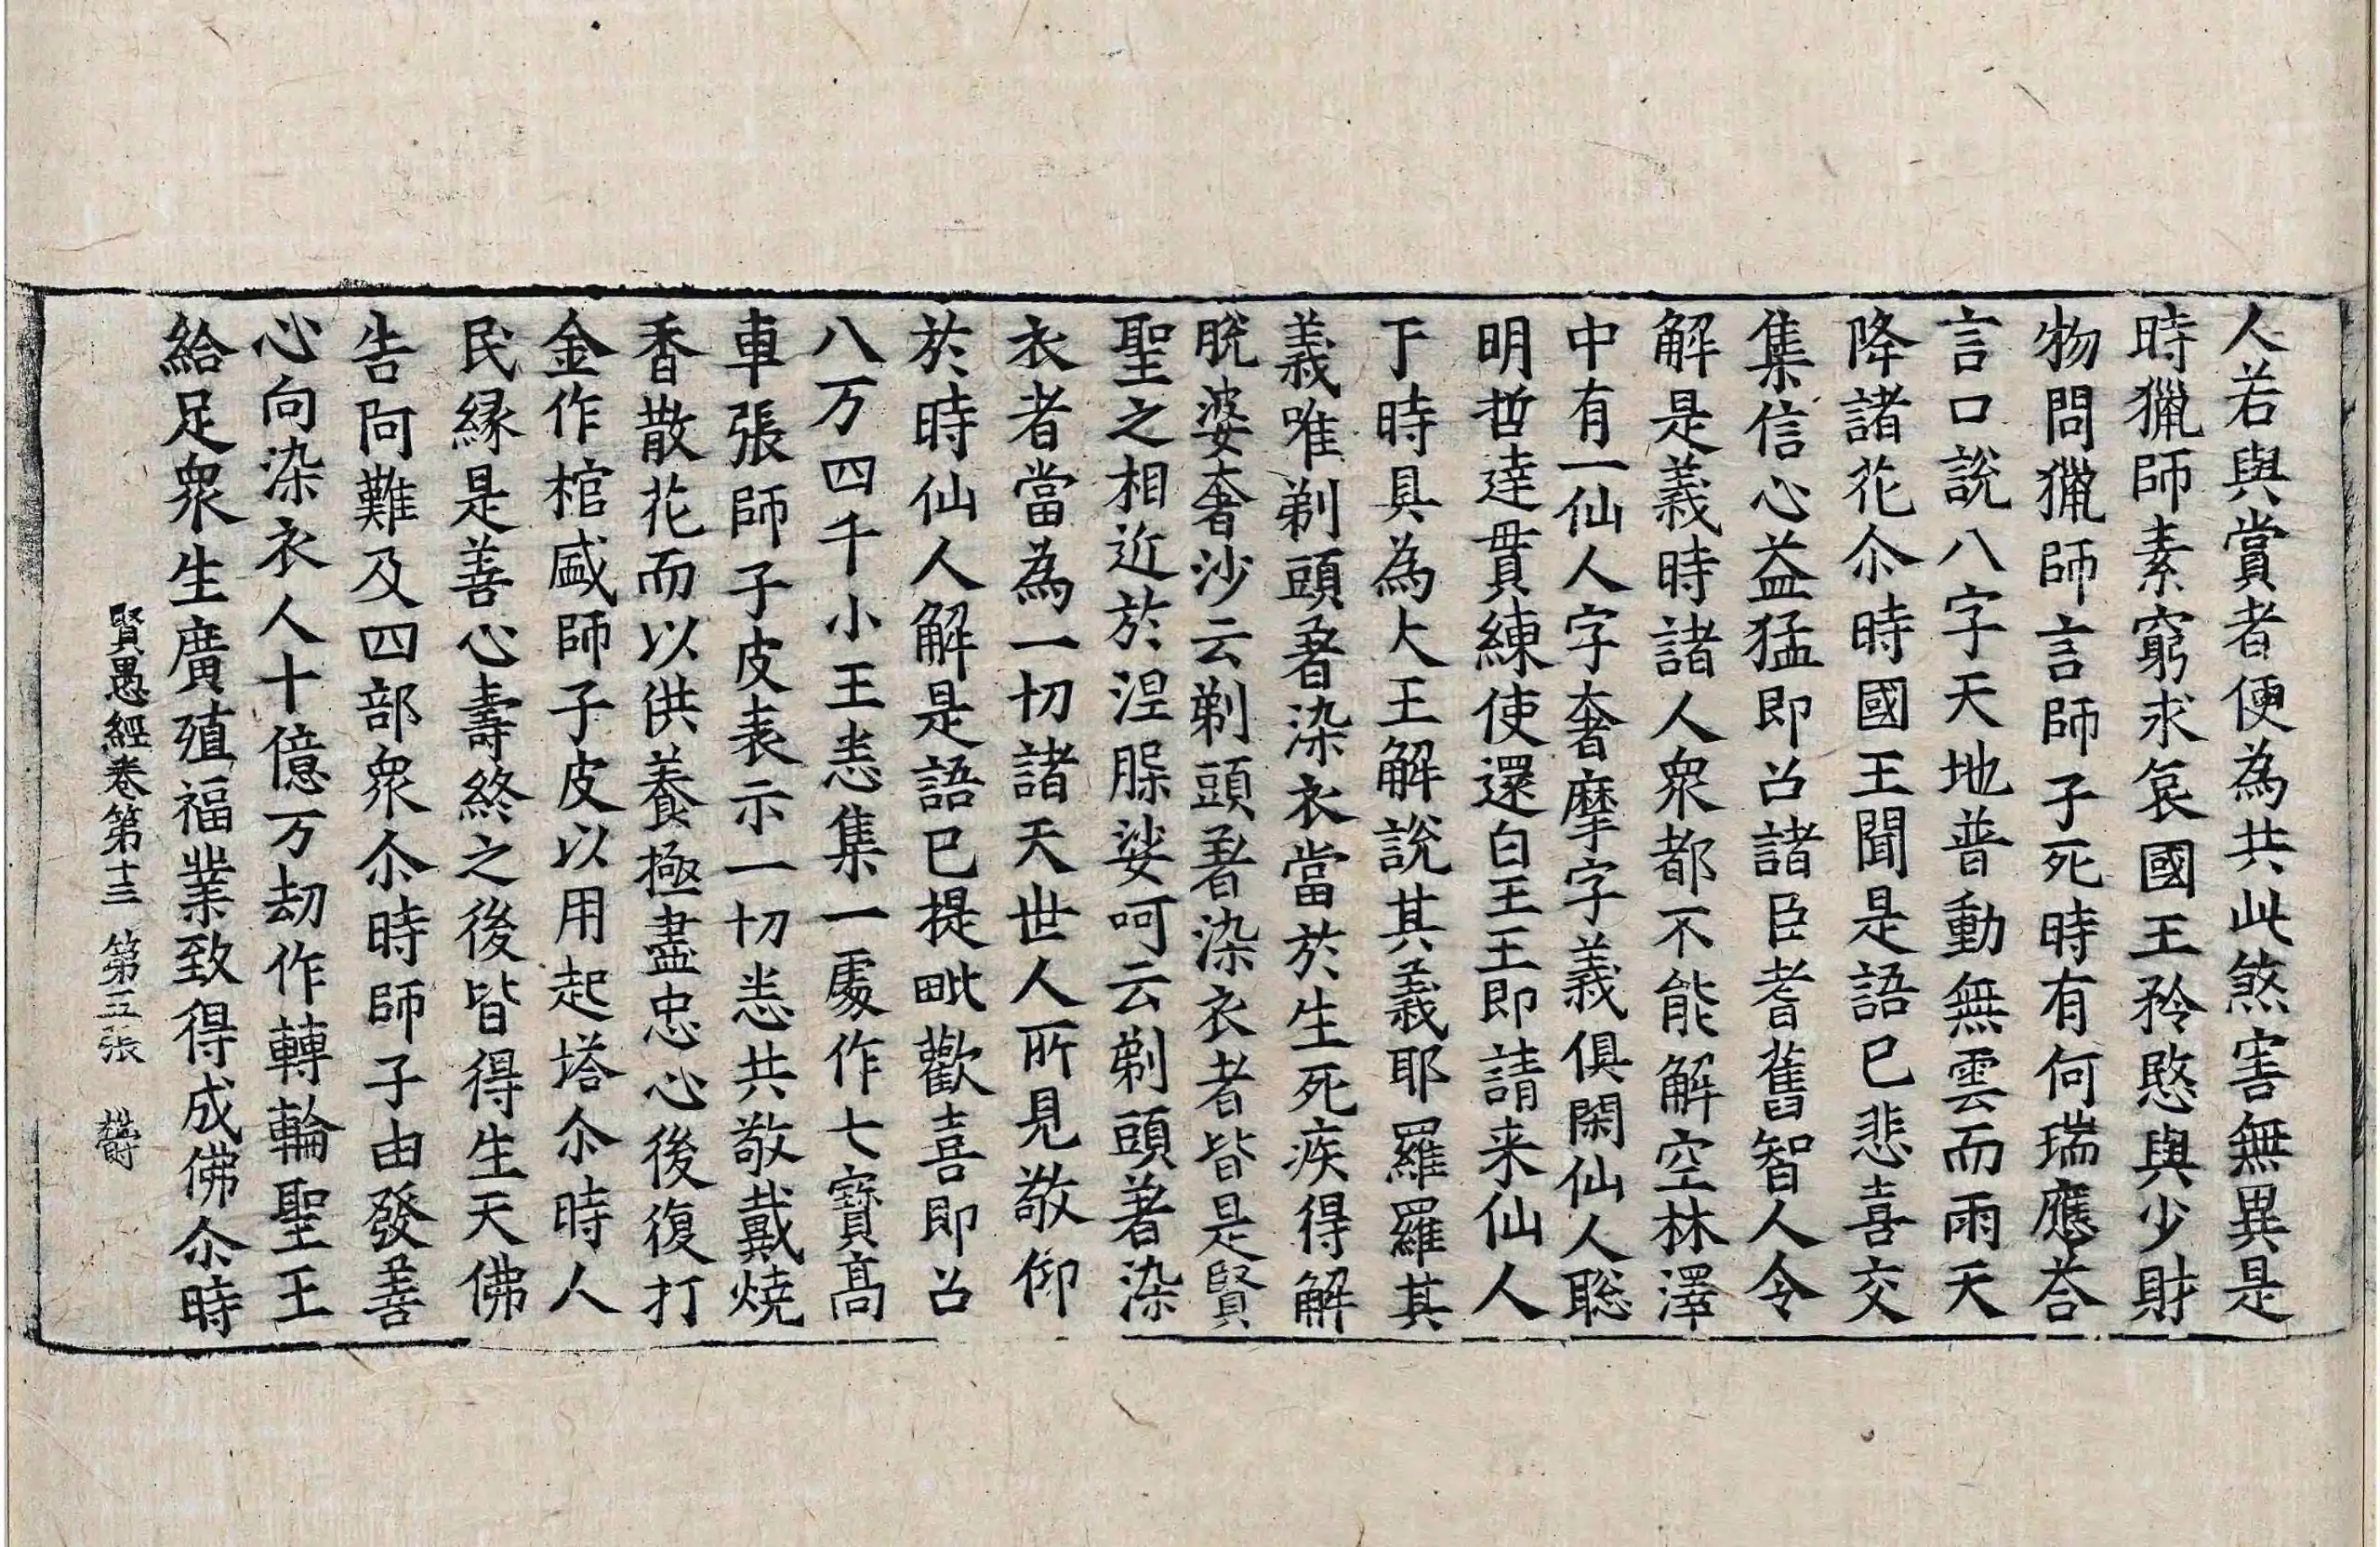 人若與賞者便為共此煞害無異是
時獵師素窮求哀國王矜愍與少財
物問獵師言師子死時有何瑞應荅
言口說八字天地普動無雲而雨天
降諸花尒時國王聞是語已悲喜交
集信心益猛即召諸臣耆舊智人令
解是義時諸人衆都不能解空林澤
中有一仙人字奢摩字義俱閑仙人聡
明哲達貫練使還白王王即請来仙人
于時具為大王解說其義耶羅羅其
義唯剃頭著染衣當於生死疾得解
脫婆奢沙云剃頭著染衣者皆是賢
聖之相近於涅脲娑呵云剃頭著染
衣者當為一切諸天世人所見敬仰
於時仙人解是語已提毗歡喜即召
八万四千小王悉集一處作七寶高
車張師子皮表示一切悉共敬戴燒
香散花而以供養極盡忠心後復打
金作棺盛師子皮以用起塔尒時人
民緣是善心壽終之後皆得生天佛
告阿難及四部衆尒時師子由發善
心向染衣人十億万劫作轉輪聖王
給足衆生廣殖福業致得成佛尒時
賢愚經卷第十三 第五張